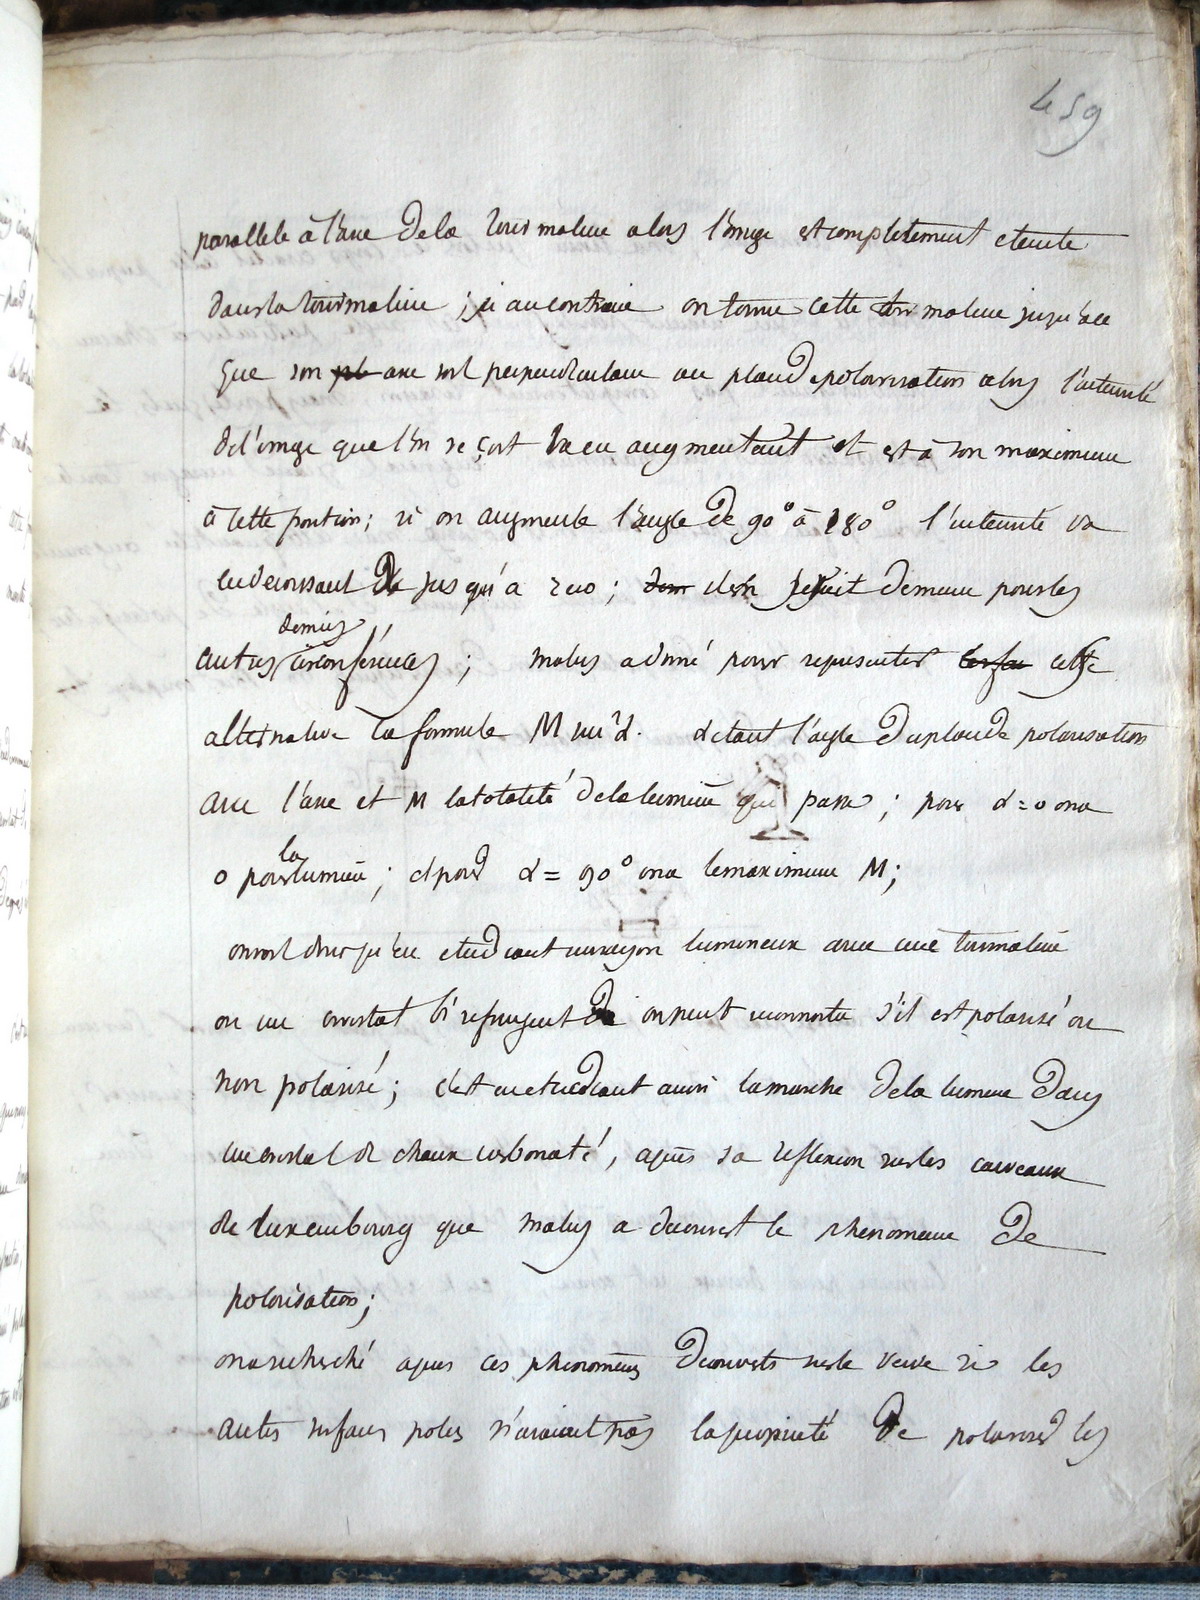 459
parallele à l'axe de la tourmaline alors l'image est completement eteinte
dans la tourmaline ; si au contraire on tourne cette tourmaline jusqu'à ce
que son pl axe soit perpendiculaire au plan de polarisation alors l'intensité
de l'image que l'on reçoit va en augmentant et est à son maximum
à cette position ; si on augmente l'angle de 90° à 180° l'intensité va
en decroissant jusqu'à zero ; il en seroit de meme pour les
demies
autres circonférences ; malus a donné pour representer cette
alternative la formule M sin²α. α etant l'angle du plan de polarisation
avec l'axe et M la totalité de la lumiere qui passe ; pour α = 0 on a
la
0 pour lumiere ; et pour α = 90° on a le maximum M ;
on voit donc qu'en etudiant un rayon lumineux avec une tourmaline
ou un cristal birefringent on peut reconnoitre s'il est polarisé ou
non polarisé ; c'est en etudiant ainsi la marche de la lumiere dans
un cristal de chaux carbonaté, après sa reflexion sur les carreaux
de luxembourg que malus a decouvert le phenomene de
polarisation ;
on a recherché apres ces phenomenes decouverts sur le verre si les
autres surfaces polies n'avaient pas la proprieté de polariser les